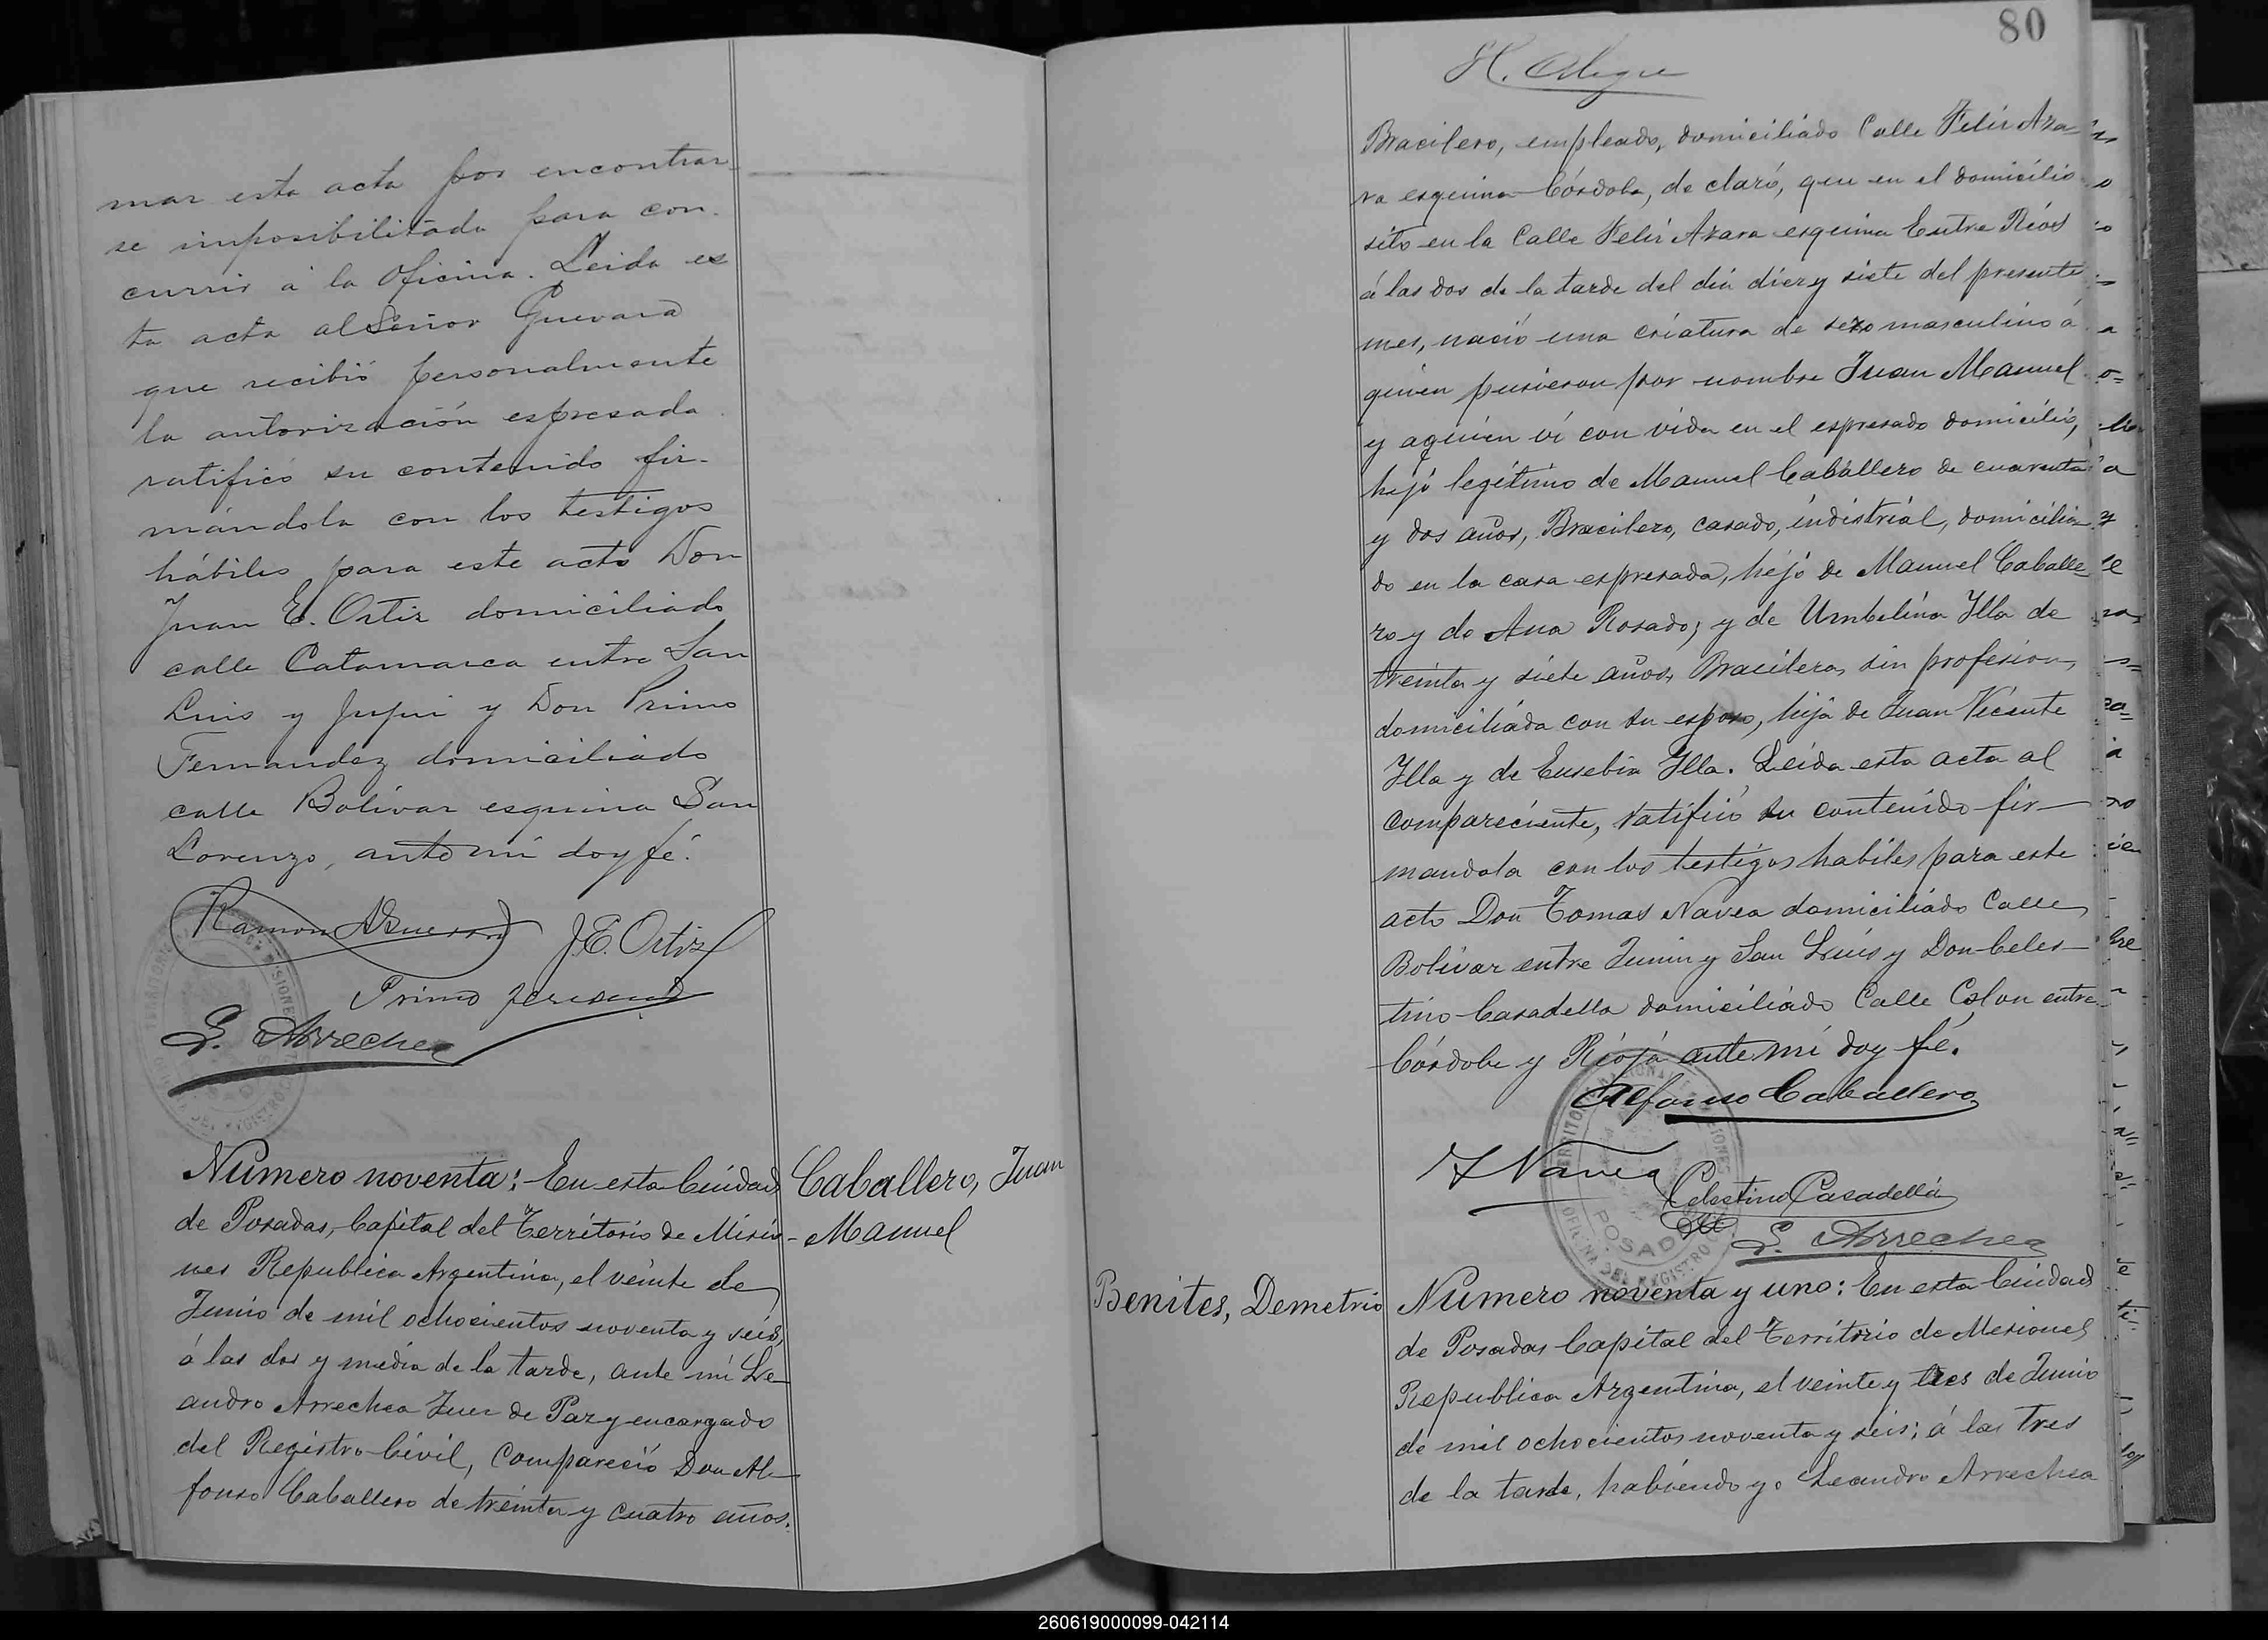 mar esta acta por encontrar-
se imposibilitada para con-
currir á la Oficina. Leida es
ta acta al Señor Guevara
que recibió personalmente
la autorización espresada
ratificó su contenido fir-
mándola con los testigos
hábiles para este acto Don
Juan E. Ortiz domiciliado
calle Catamarca entre San
Luis y Jujui y Don Primo
Fernandez domiciliado
calle Bolívar esquina San
Lorenzo, ante mí doy fé.
Ramon Guevara J. E. Ortiz
Primo Fernandez
L. Arrechea
Caballero, Juan
Manuel
Numero noventa: En esta Ciudad
de Posadas, Capital del Território de Misio-
nes Republica Argentina, el veinte de
Junio de mil ochocientos noventa y seis,
á las dos y media de la tarde, ante mí Le-
andro Arrechea Juez de Paz y encargado
del Registro Civil, compareció Don Al-
fonso Caballero de treinta y cuatro años.
80
H. Alegre
Bracilero, empleado, domiciliado Calle Felix Aza-
ra esquina Córdoba, de claró, que en el domicilio
sito en la Calle Felix Azara esquina Entre Rios
á las dos de la tarde del dia diez y siete del presente
mes, nació una criatura de sexo masculino á
quien pusieron por nombre Juan Manuel
y aquien ví con vida en el espresado domicilio,
hijo legítimo de Manuel Caballero de cuarenta
y dos años, Bracilero, casado, indistrial, domicilia-
do en la casa espresada, hijo de Manuel Caballe-
ro y de Ana Rosado; y de Umbelina Illa de
treinta y siete años, Bracilera, sin profesion,
domiciliada con su esposo, hija de Juan Vicente
Illa y de Eusebia Illa. Leida esta acta al
compareciente, ratificó su contenido fir-
mandola con los testigos habiles para este
acto Don Tomas Navea domiciliado Calle
Bolívar entre Junin y San Luis y Don Celes-
tino Casadella domiciliado Calle Colon entre
Córdoba y Rioja ante mí doy fé.
Alfonso Caballero
T Navea
Celestino Casadella
L. Arrechea
Benites, Demetrio
Numero noventa y uno: En esta Ciudad
de Posadas Capital del Territorio de Misiones
Republica Argentina, el veinte y tres de Junio
de mil ochocientos noventa y seis; á las tres
de la tarde, habiendo yo Leandro Arrechea
260619000099-042114